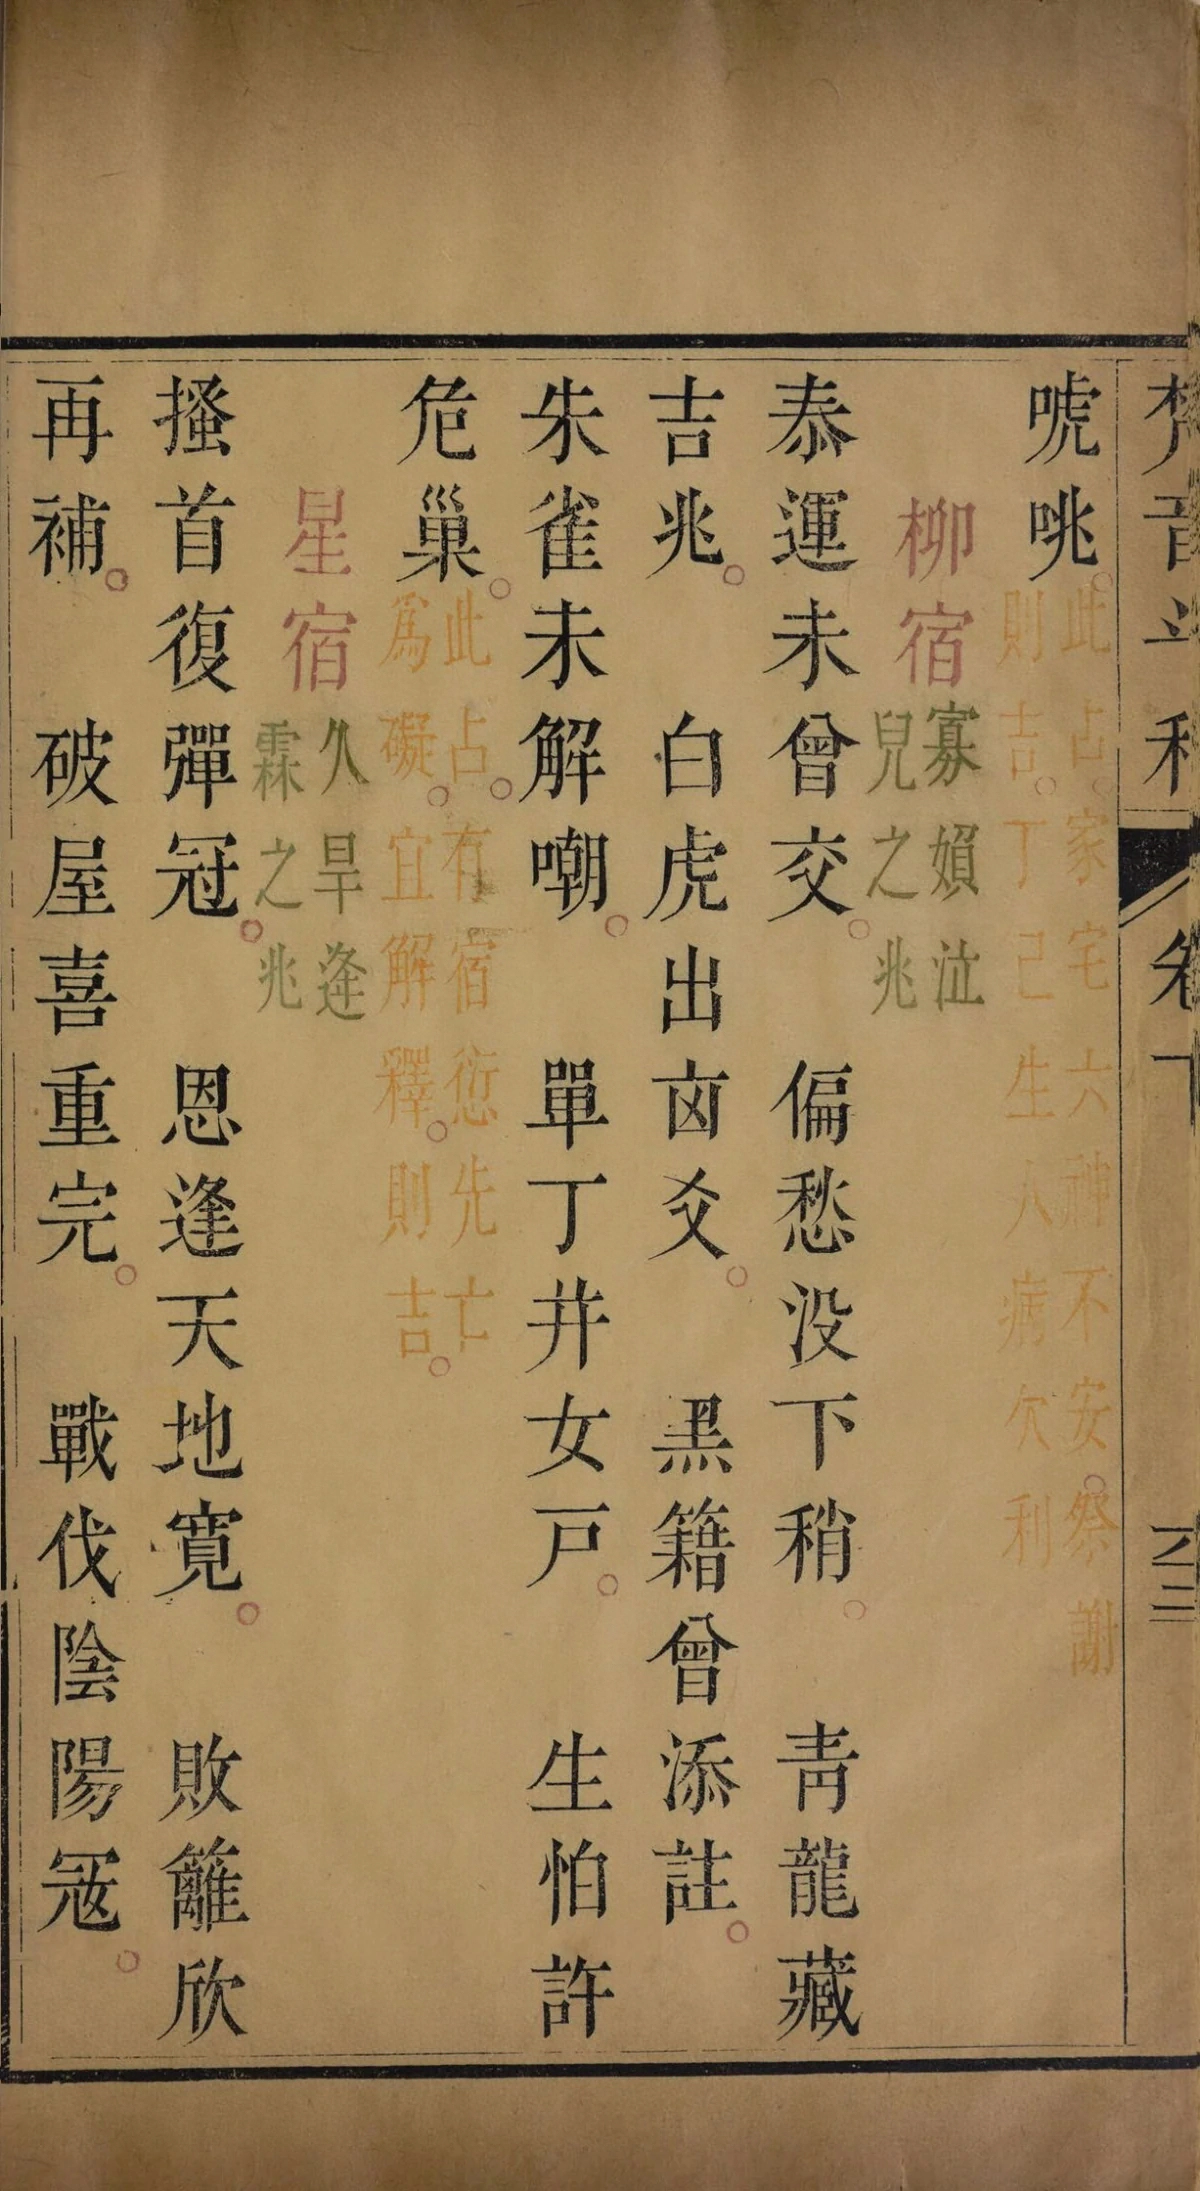 梵音斗科 卷下
唬咷。
此占。家宅六神不安。祭謝
則吉。丁己生人病欠利
柳宿
寡媍泣
兒之兆
泰運未曾交。 偏愁没下稍。 青龍藏
吉兆。 白虎出㐫爻。 黒籍曾添註。
朱雀未解嘲。 單丁并女戸。 生怕許
危巢。
此占。有宿愆先亡
爲礙。宜解釋。則吉。
星宿
久旱逢
霖之兆
搔首復彈冠。 恩逢天地寛。 敗籬欣
再補。 破屋喜重完。 戰伐陰陽冦。